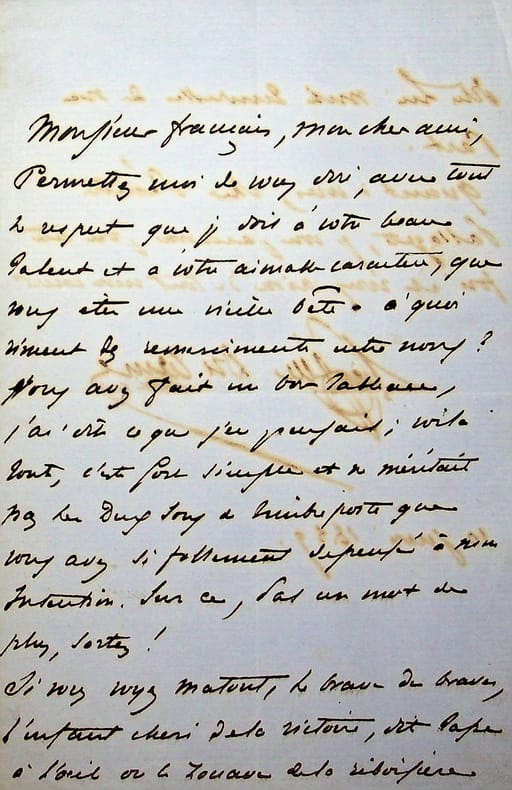 Monsieur français, mon cher ami,
Permettez moi de vous dire, avec tout
le respect que je dois à votre beau
talent et à votre aimable caractère, que
vous etes une vieille bête. à quoi
riment les remerciments entre nous ?
Vous avez fait un bon tableau,
j'ai dit ce que j'en pensais ; voilà
tout, c'est fort simple et ne méritait
pas les Deux Sous de timbre poste que
vous avez si follement depensé à mon
intention. Sur ce, pas un mot de
plus, sortez !
Si vous voyez Matout, le brave des braves,
l'enfant cheri de la victoire, dit Tape
à l'œil ou le Zouave de la